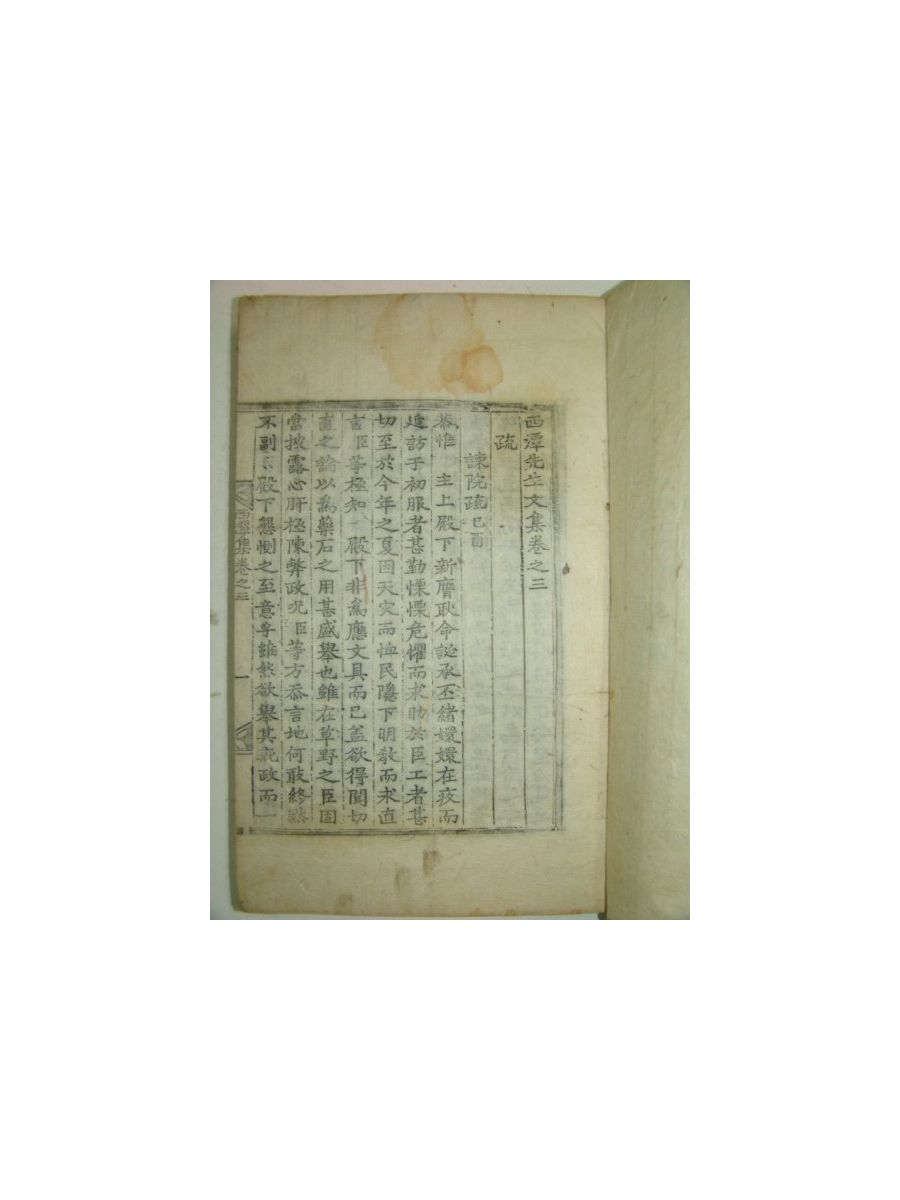 西潭先生文集卷之三
疏
諫院疏己酉
恭惟 主上殿下新膺耿命誕承丕緖嬛嬛在疚而
延訪于初服者甚勤慄慄危懼而求助於臣工者甚
切至於今年之夏因天灾而恤民隱下明敎而求直
言臣等極知 殿下非爲應文具而已盖欲得聞切
直之論以爲藥石之用甚盛擧也雖在草野之臣固
當披露心肝極陳弊政况臣等方忝言地何敢終默
不副 殿下懇惻之至意乎雖然欲擧其疵政而一
西潭集卷之三 一